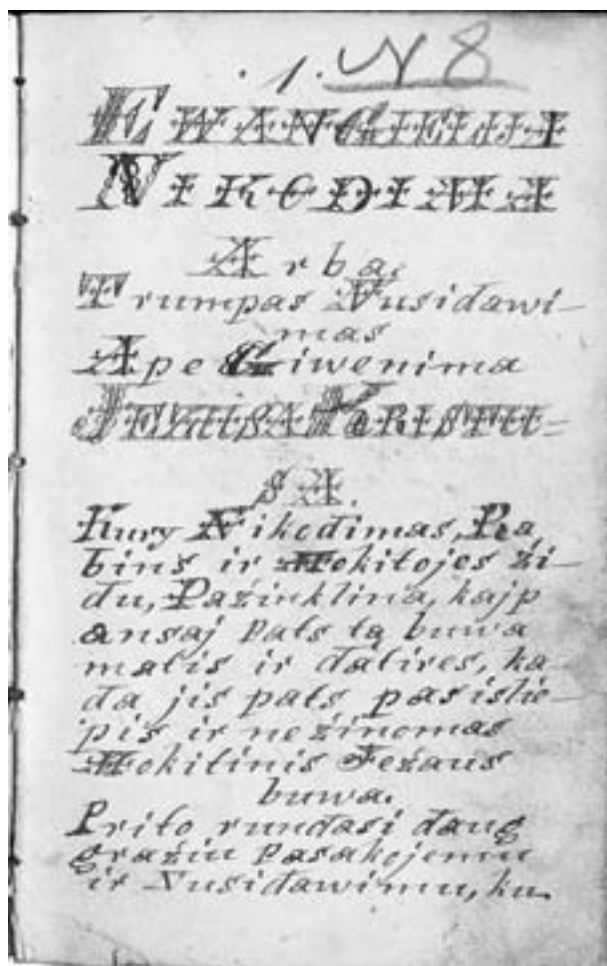 . 1 . N 8
EWANGIELIJA
NIKODIMA
Arba
Trumpas Nusidawi-
mas
Ape Giwenima
JEZUSA KRISTU-
SA.
Kury Nikodimas, Ra
bins ir Mokitojes żi-
du, Pażinklina, kajp
ansaj Pats tą buwa
matis ir datires, ka-
da jis pats pasislie-
pis ir neżinomas
Mokitinis Jeżaus
buwa.
Prito rundasi daug
grażiu Pasakojemu
ir Nusidawimu, ku